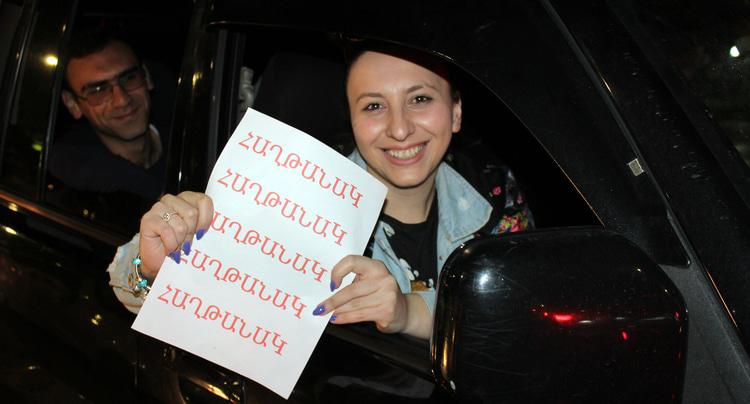 ՀԱՂԹԱՆԱԿ
ՀԱՂԹԱՆԱԿ
ՀԱՂԹԱՆԱԿ
ՀԱՂԹԱՆԱԿ
ՀԱՂԹԱՆԱԿ